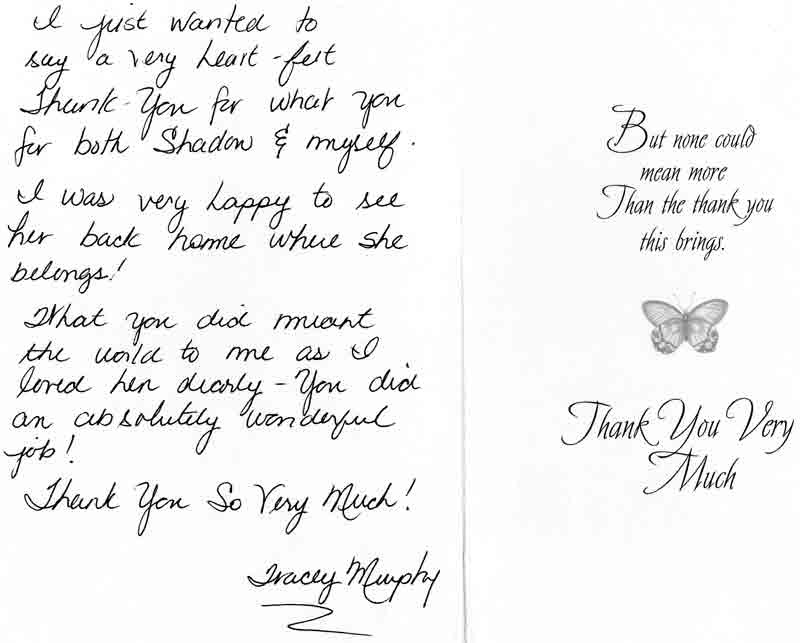 I just wanted to
say a very heart-felt
Thank-You for what you
for both Shadow & myself.
I was very happy to see
her back home where she
belongs!
What you did meant
the world to me as I
loved her dearly - You did
an absolutely wonderful
job!
Thank You So Very Much!
Tracey Murphy
But none could
mean more
Than the thank you
this brings.
Thank You Very
Much